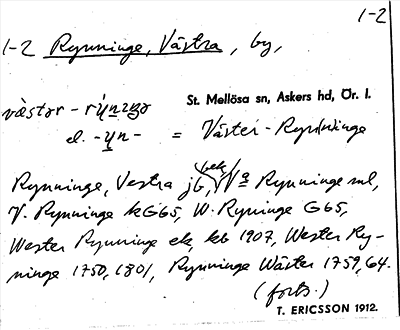 1-2
1-2 Rynninge, Västra, by,
St. Mellösa sn, Askers hd, Ör. l.
el. -yn- = Väster-Rynninge
Rynninge, Vestra jb, Va Rynninge ml,
V. Rynninge kG65, W. Ryninge G65,
Wester Rynninge ek, kb 1907, Wester Ry-
ninge 1750, 1801, Rynninge Wäster 1759, 64.
(forts.)
T. ERICSSON 1912.